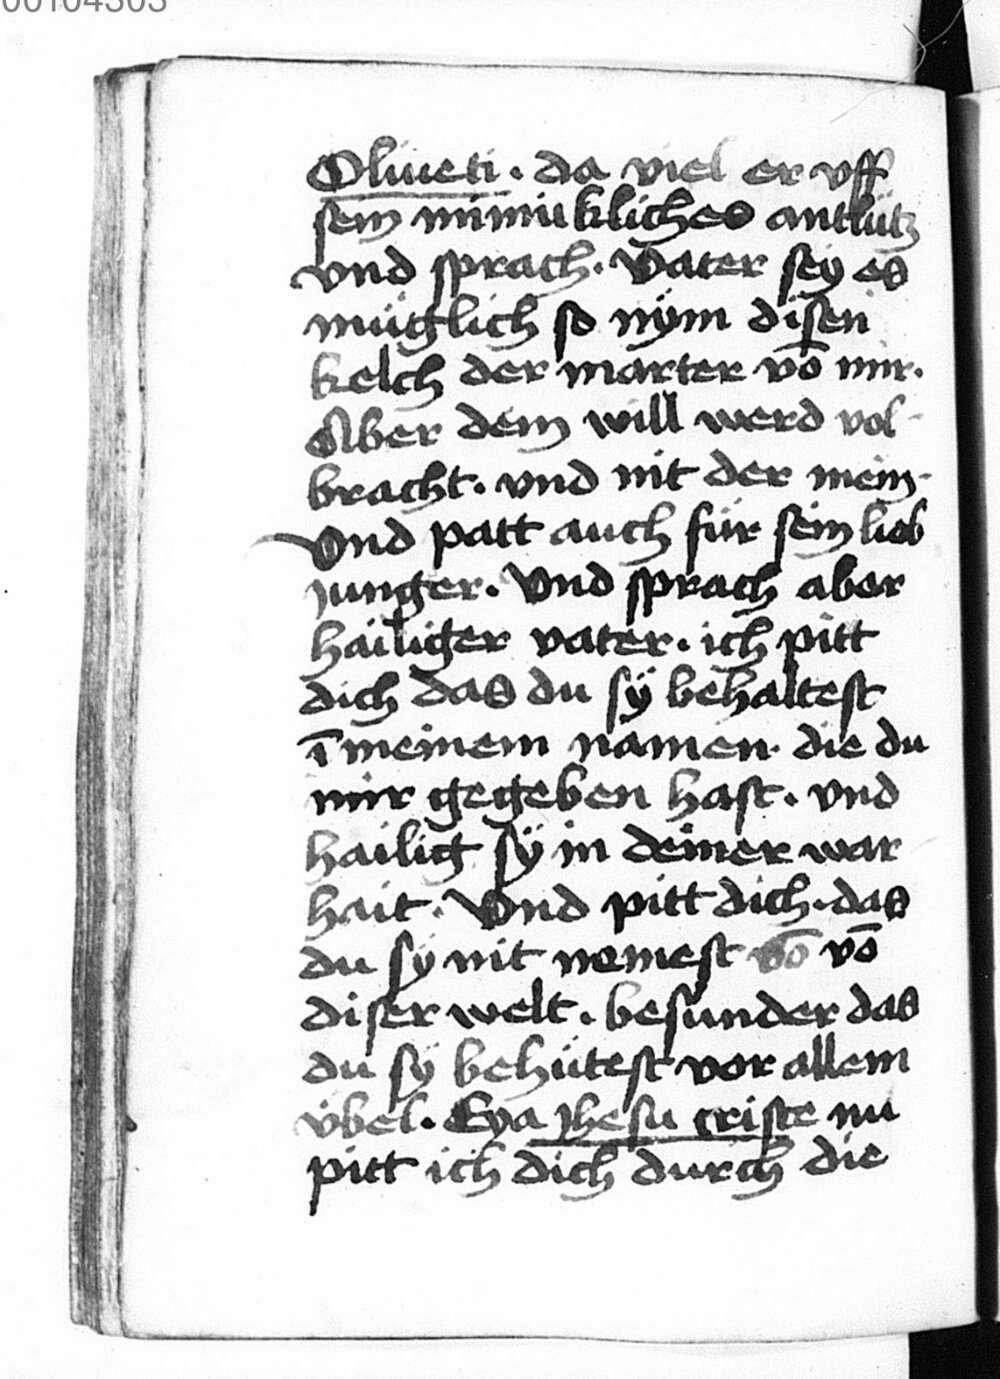 00104303
Oliueti . da viel er vff
sein minnikliches antlütz
vnd sprach . Vater sey es
müglich so nÿm disen
kelch der marter vō mir .
Aber dein will werd vol-
bracht . vnd nit der mein .
Vnd patt auch für sein lieb
junger . Vnd sprach aber
häiliger vater . ich pitt
dich das du sÿ behaltest
ī meinem namen . die du
mir gegeben hast . vnd
hailig sÿ in deiner war
hait . Vnd pitt dich . das
du sÿ nit nemest vō vō
diser welt . besunder das
du sÿ behütest vor allem
vbel . Eya jhesu criste nu
pitt ich dich durch die